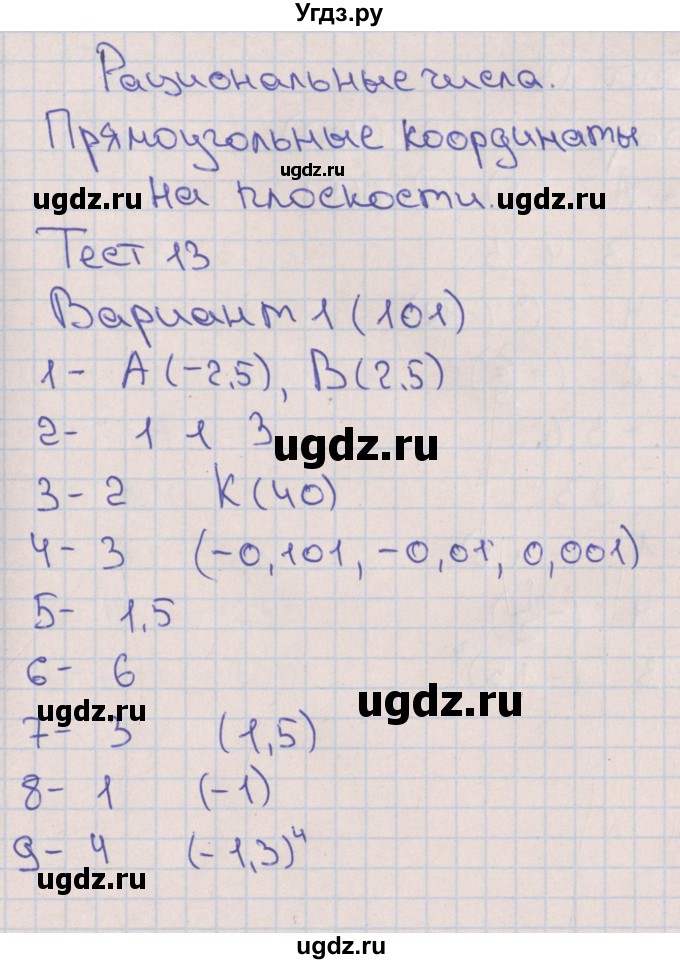 Угдз.ру
Рациональные числа.
Прямоугольные координаты
ugdz.ru
ugdz.ru на плоскости. ugdz.ru
Тест 13
Вариант 1 (101)
1- А(-2,5), В(2,5)
2- 1 и 3
ugdz.ru
3- 2 К(40)
4- 3 (-0,101, -0,01, 0,001)
5- 1,5
6- 6
ugdz.ru
ugdz.ru
7- 3 (1,5)
8- 1 (-1)
9- 4 (-1,3)⁴
ugdz.ru
ugdz.ru
ugdz.ru